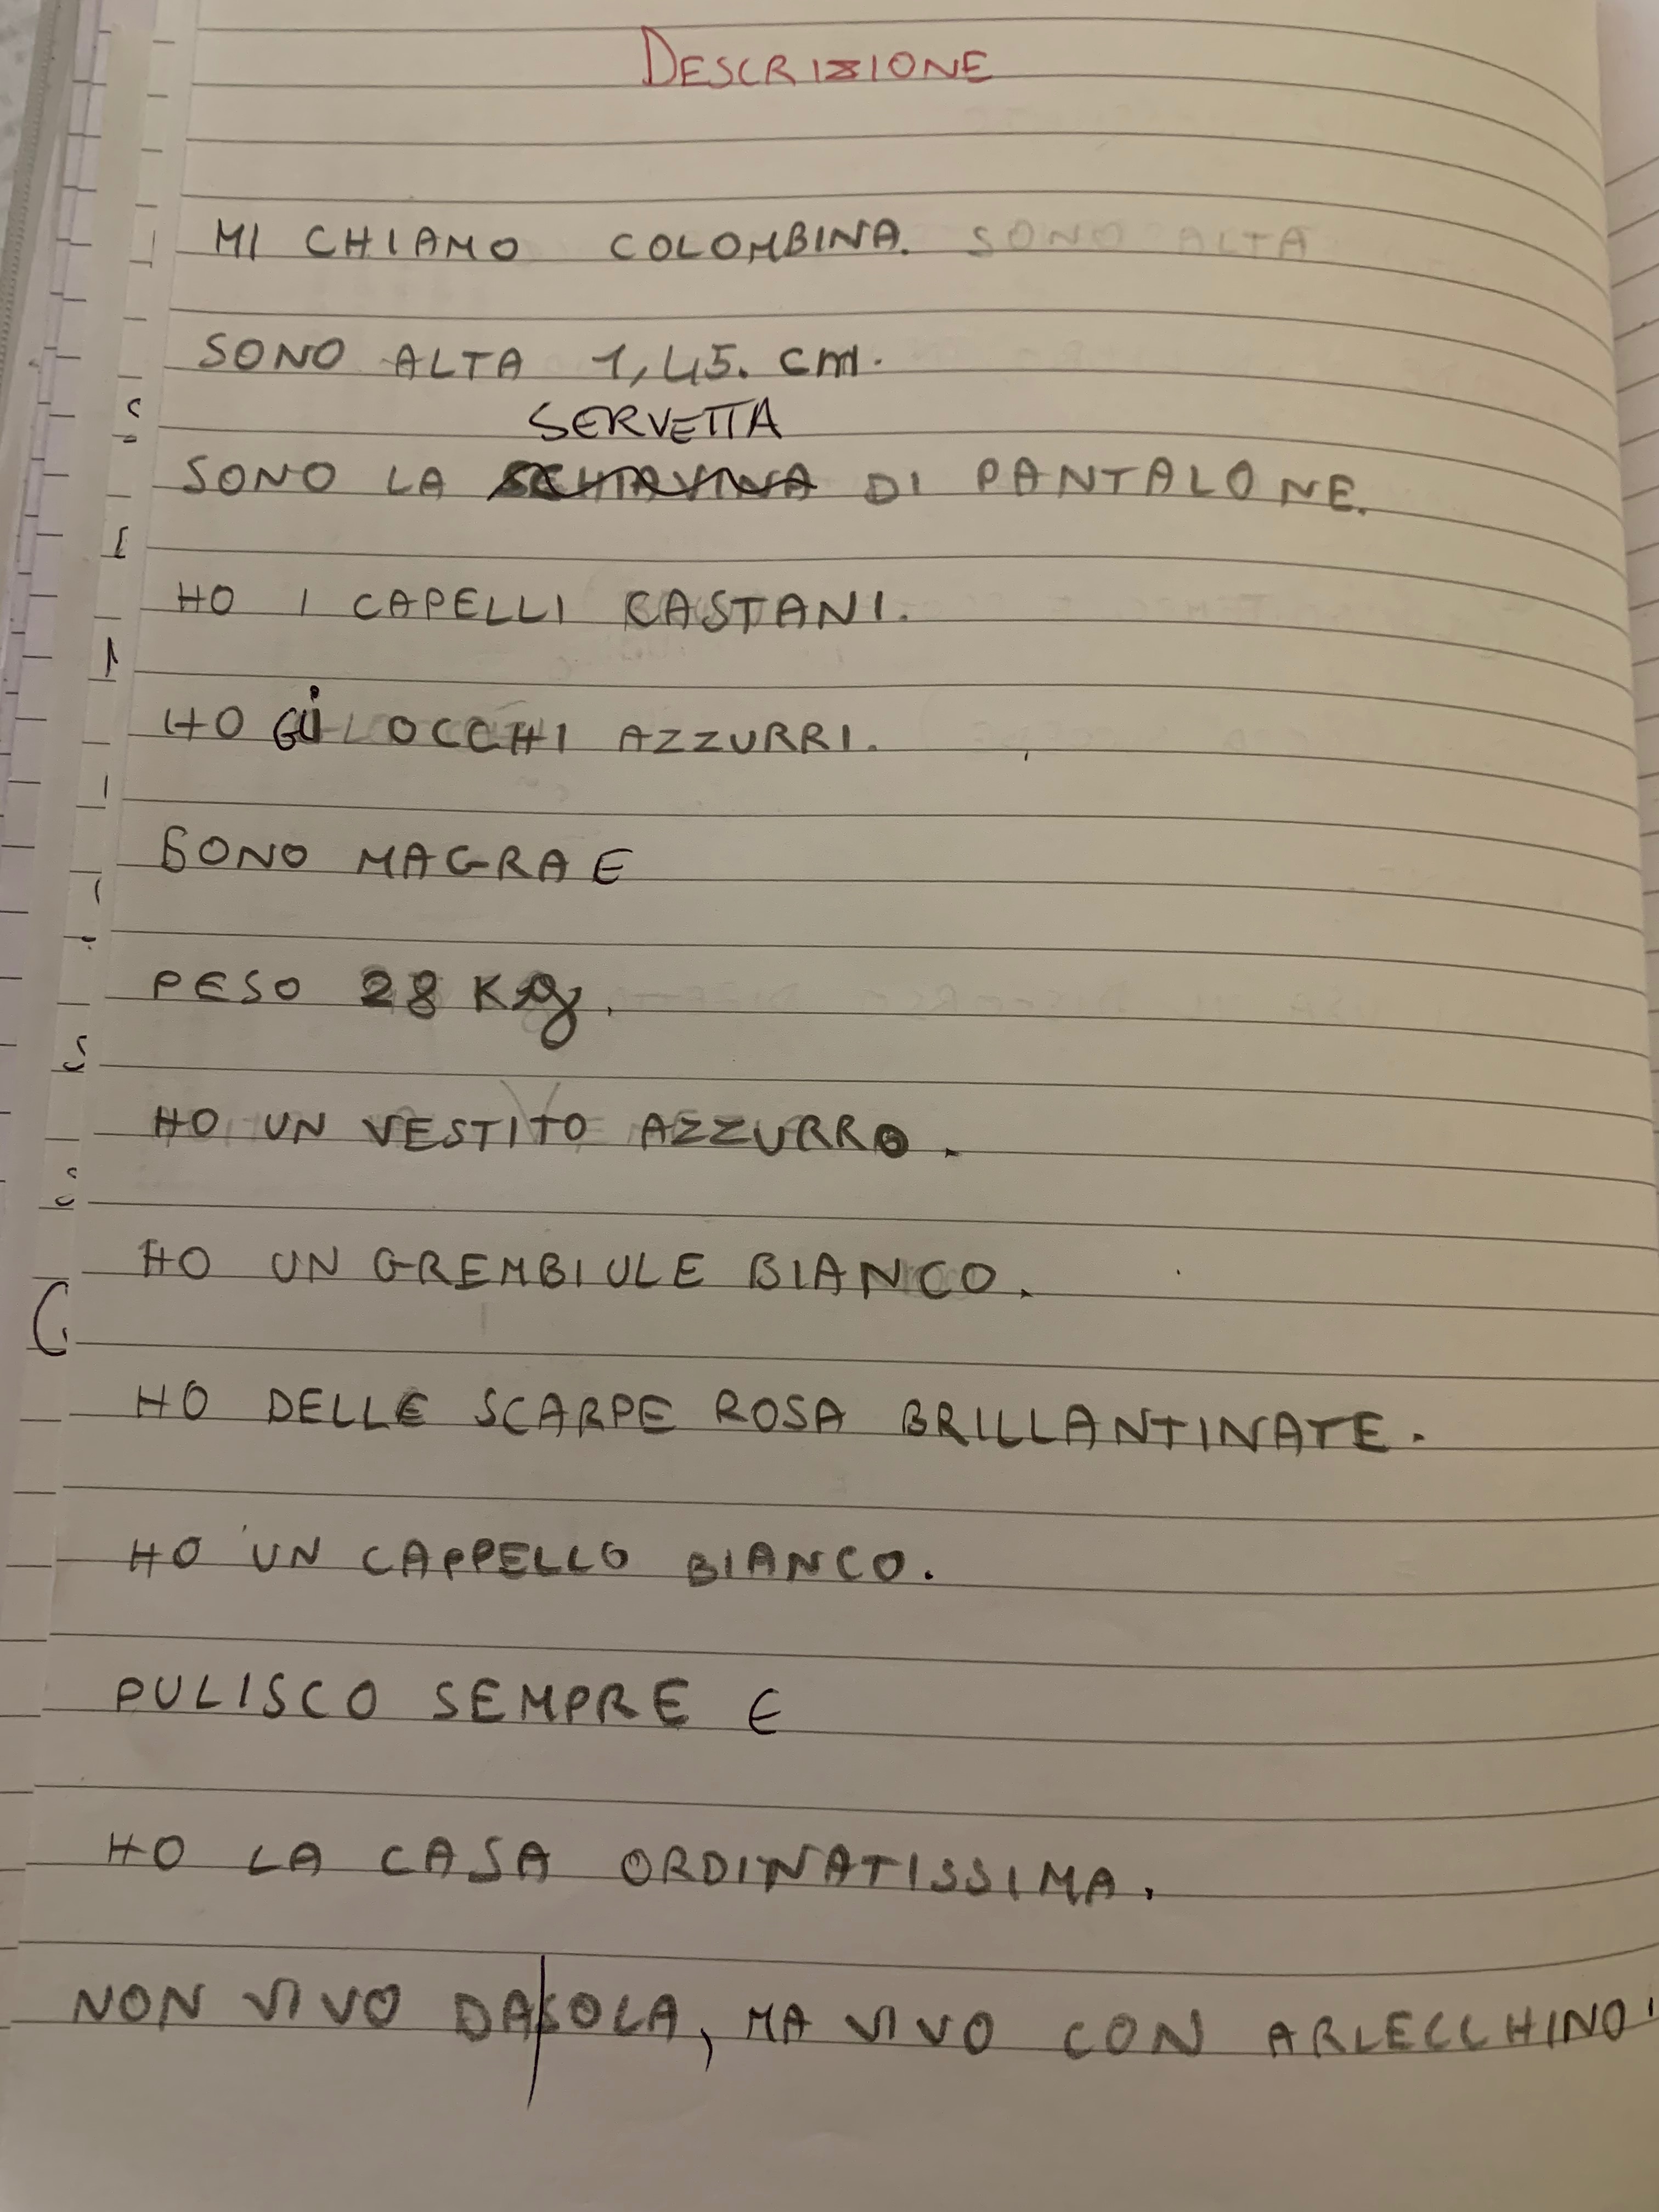 DESCRIZIONE
MI CHIAMO COLOMBINA. SONO ALTA
SONO ALTA 1,45. cm.
SERVETTA
SONO LA SCHIAVINA DI PANTALONE.
HO I CAPELLI CASTANI.
HO GLI OCCHI AZZURRI.
SONO MAGRA E
PESO 28 Kg.
HO UN VESTITO AZZURRO.
HO UN GREMBIULE BIANCO.
HO DELLE SCARPE ROSA BRILLANTINATE.
HO UN CAPPELLO BIANCO.
PULISCO SEMPRE E
HO LA CASA ORDINATISSIMA.
NON VIVO DA|SOLA, MA VIVO CON ARLECCHINO!